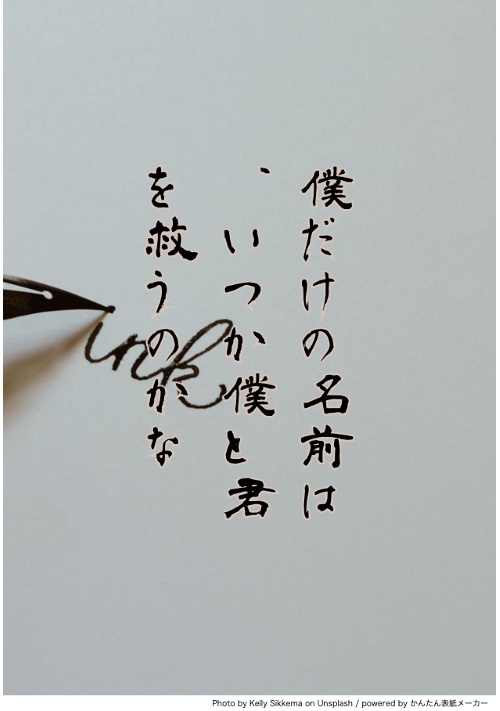 僕だけの名前は
、いつか僕と君
を救うのかな
ink
Photo by Kelly Sikkema on Unsplash / powered by かんたん表紙メーカー